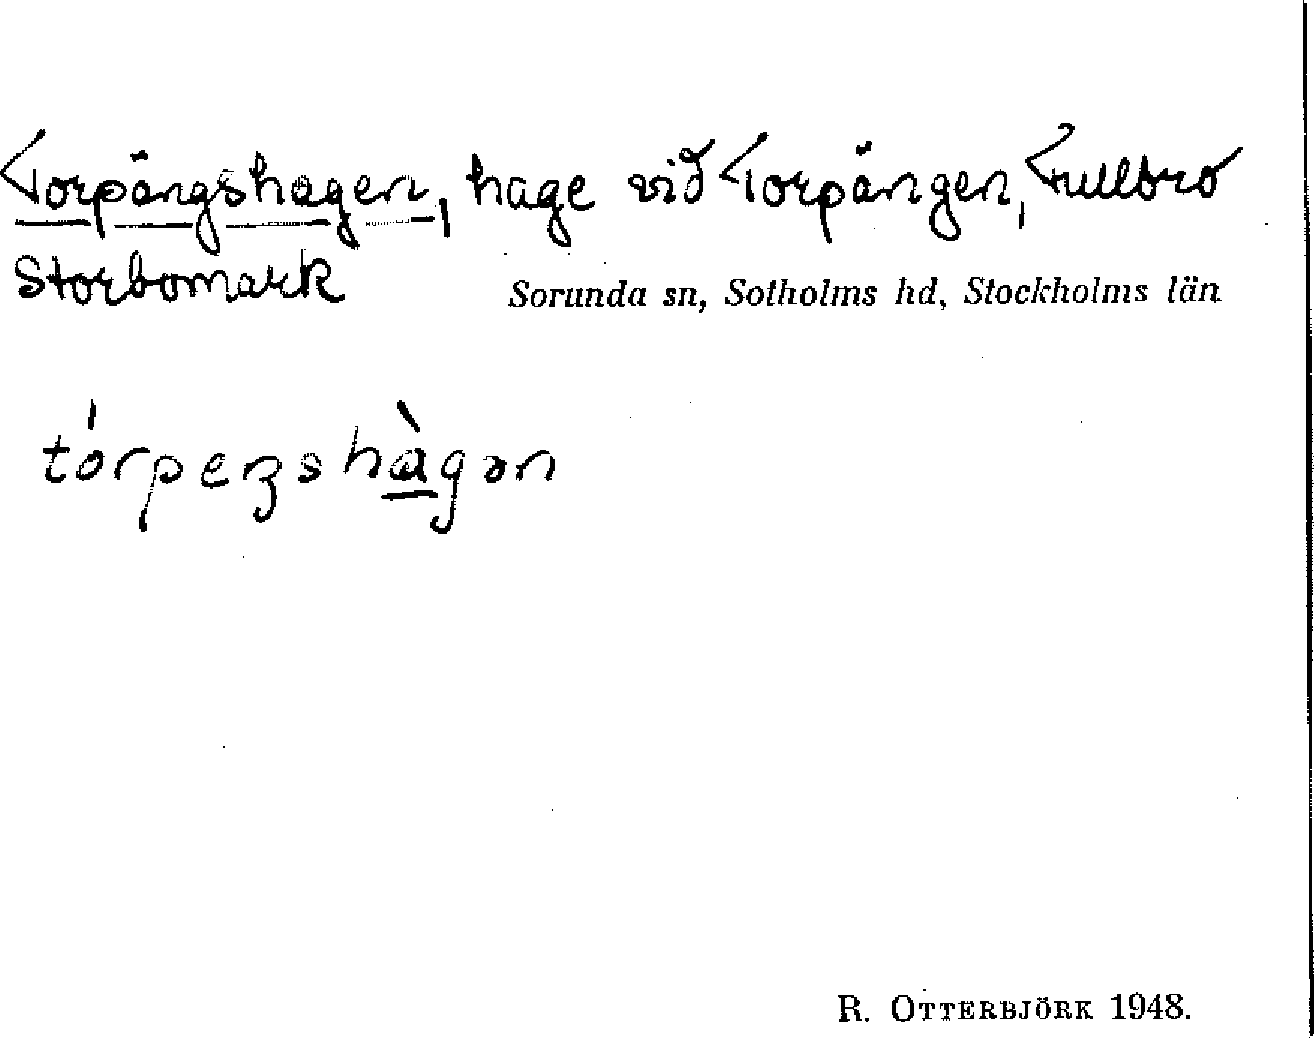 Torpängshagen, hage vid Torpängen, Fullbro
Storbomark
Sorunda sn, Sotholms hd, Stockholms län
tórpeŋshàgən
R. OTTERBJÖRK 1948.